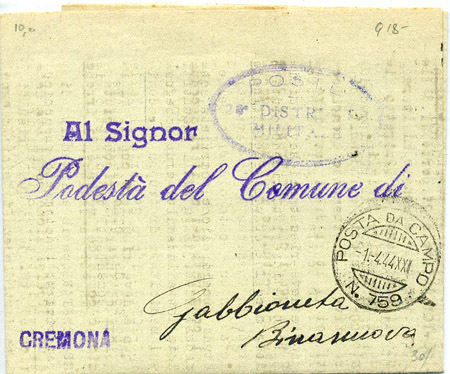 10,-
918-
POSTE
DISTR
MILITA
Al Signor
Podestà del Comune di
POSTA DA CAMPO
-1.4.44XXI
N. 759
Gabbioneta
Binanuova
CREMONA
30/